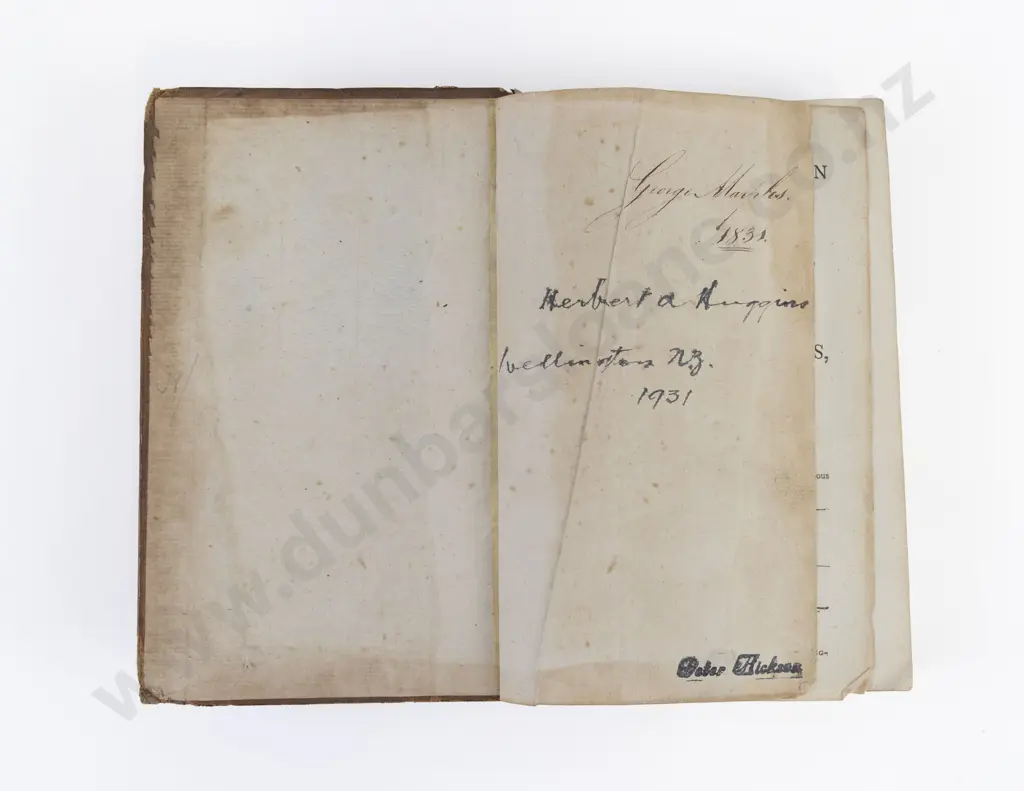 George
1831.
Herbert A Huggins
Wellington NZ.
1931
Peter Hickson
N
S,
ous
www.dunbarsloane.co.nz